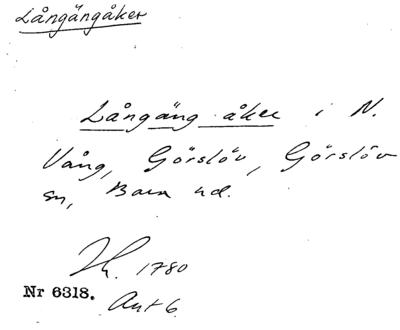 Långängåker
Långäng åker i N.
Vång, Görslöv, Görslöv
sn, Bara hd.
1780
Nr 6318. Akt 6.